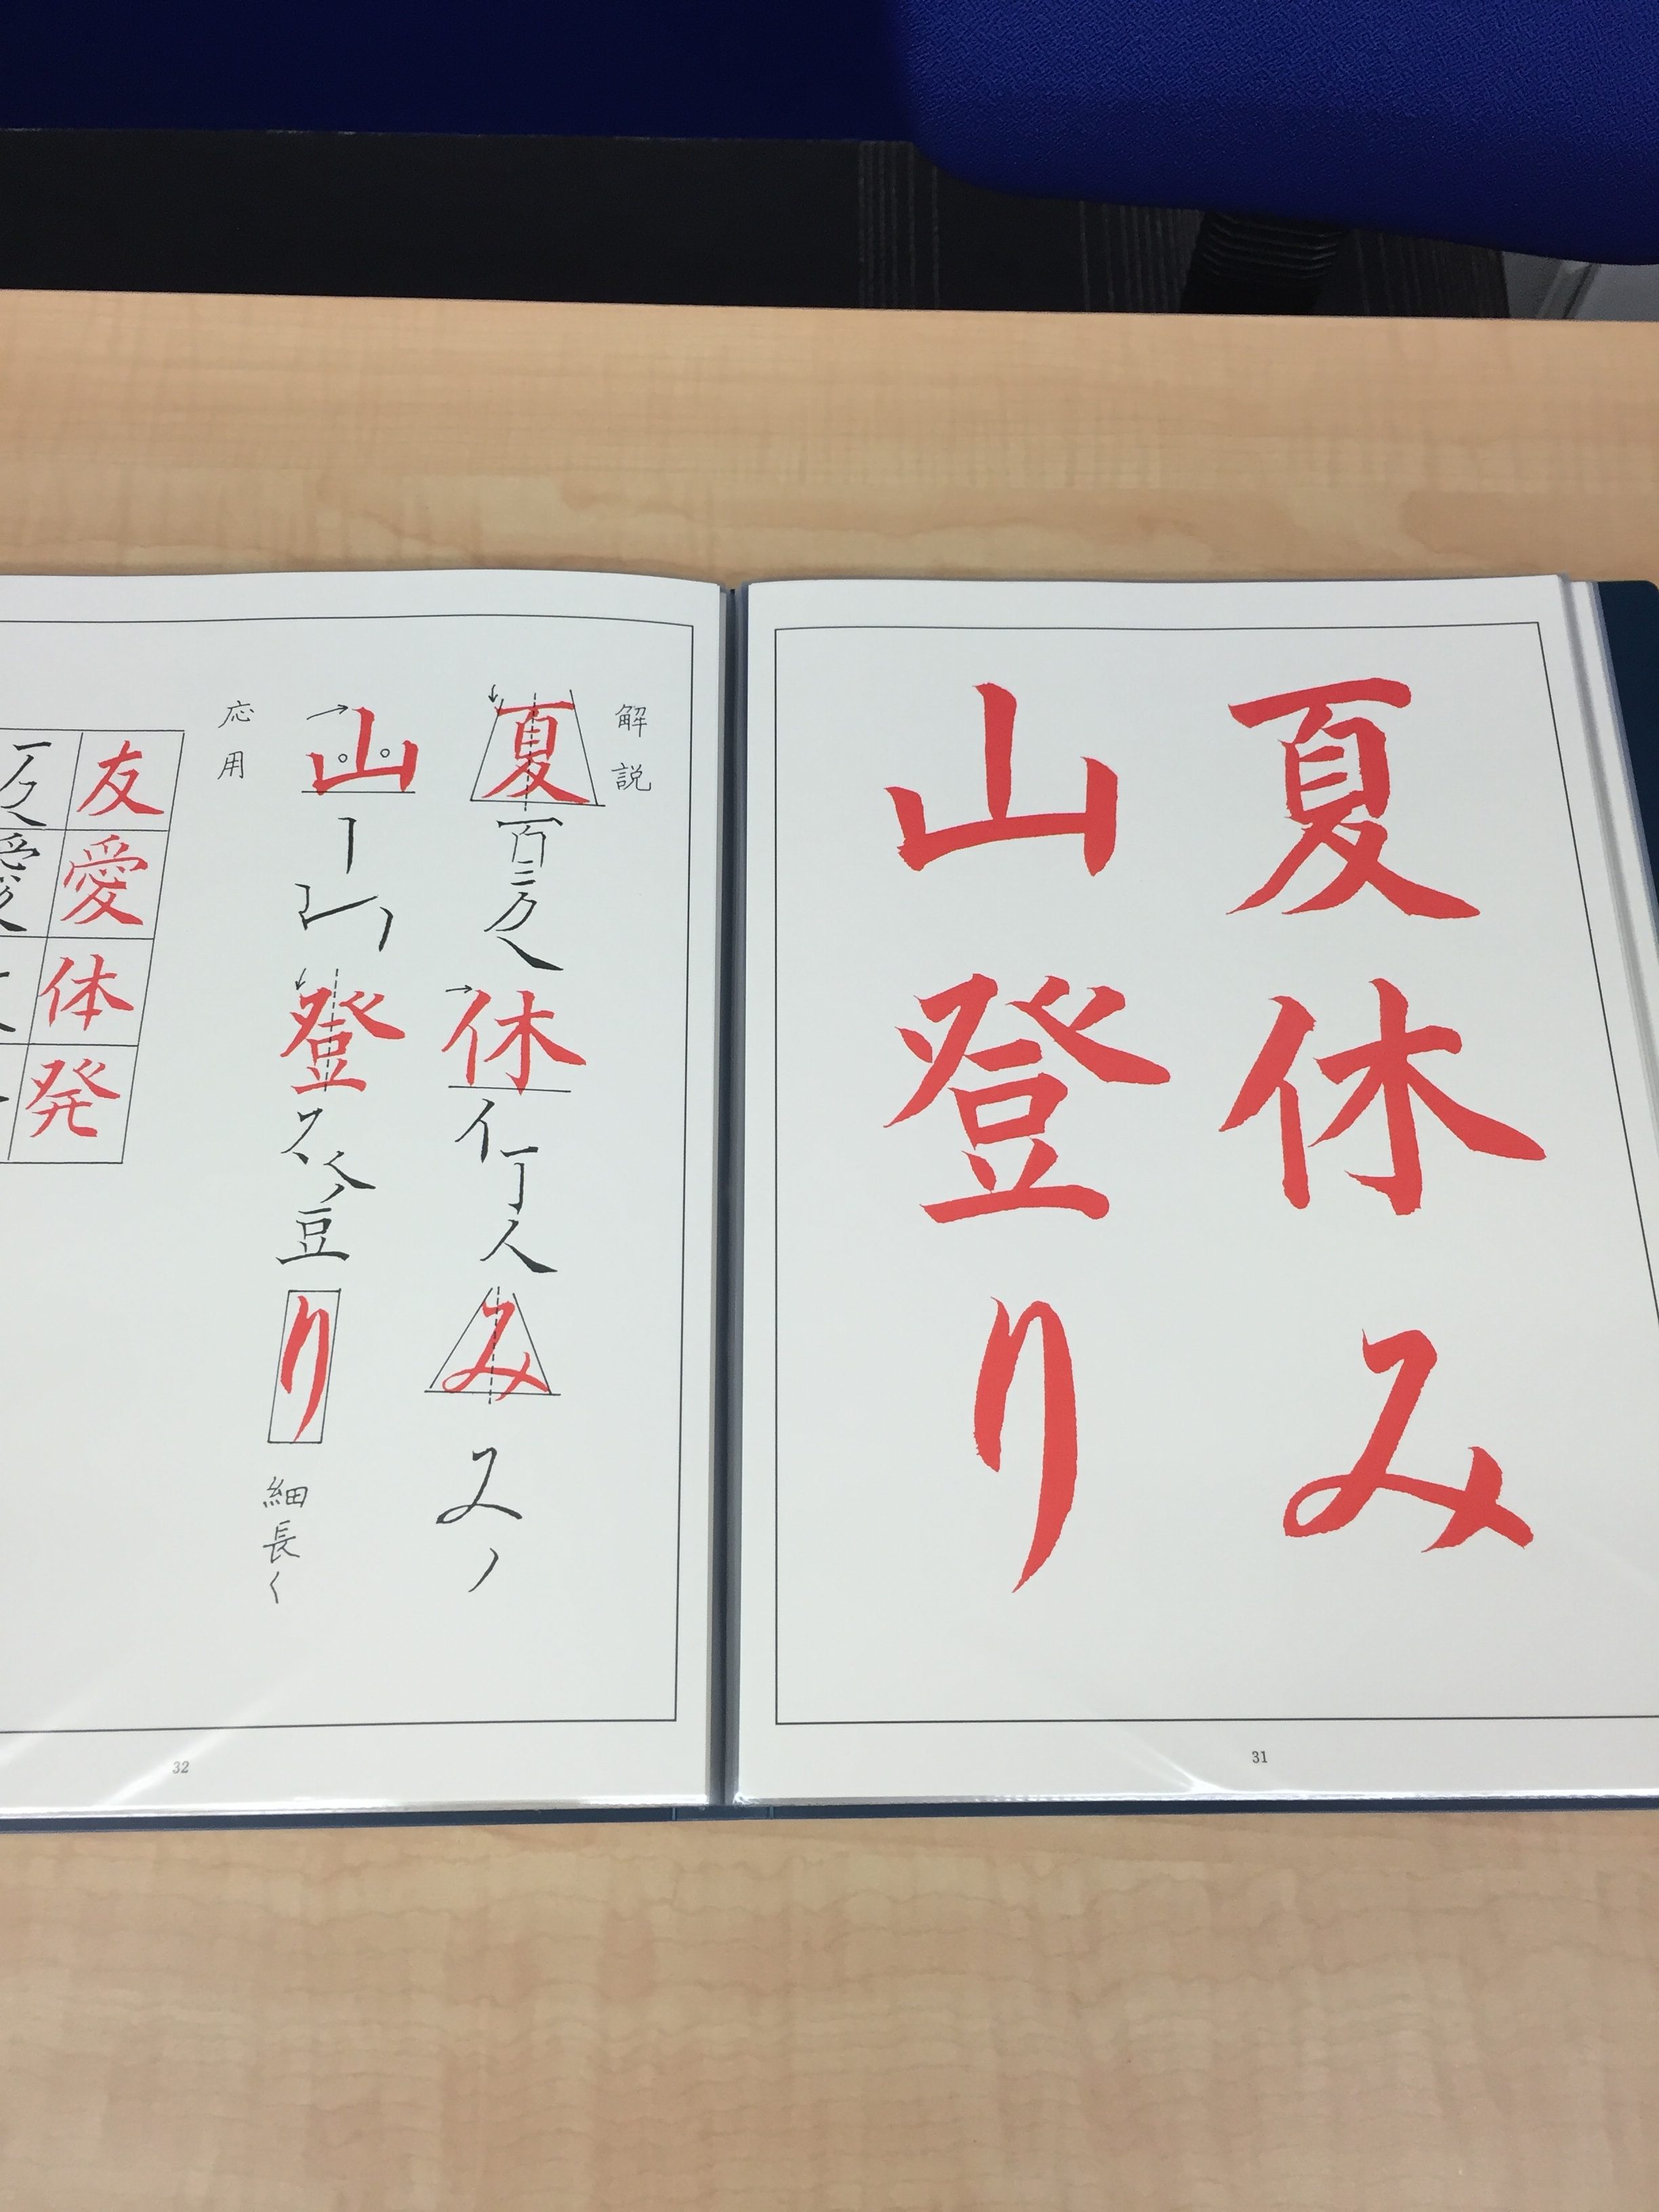 夏休み
山登り
31
解説
夏休み
山登り
細長く
応用
友愛体発
32